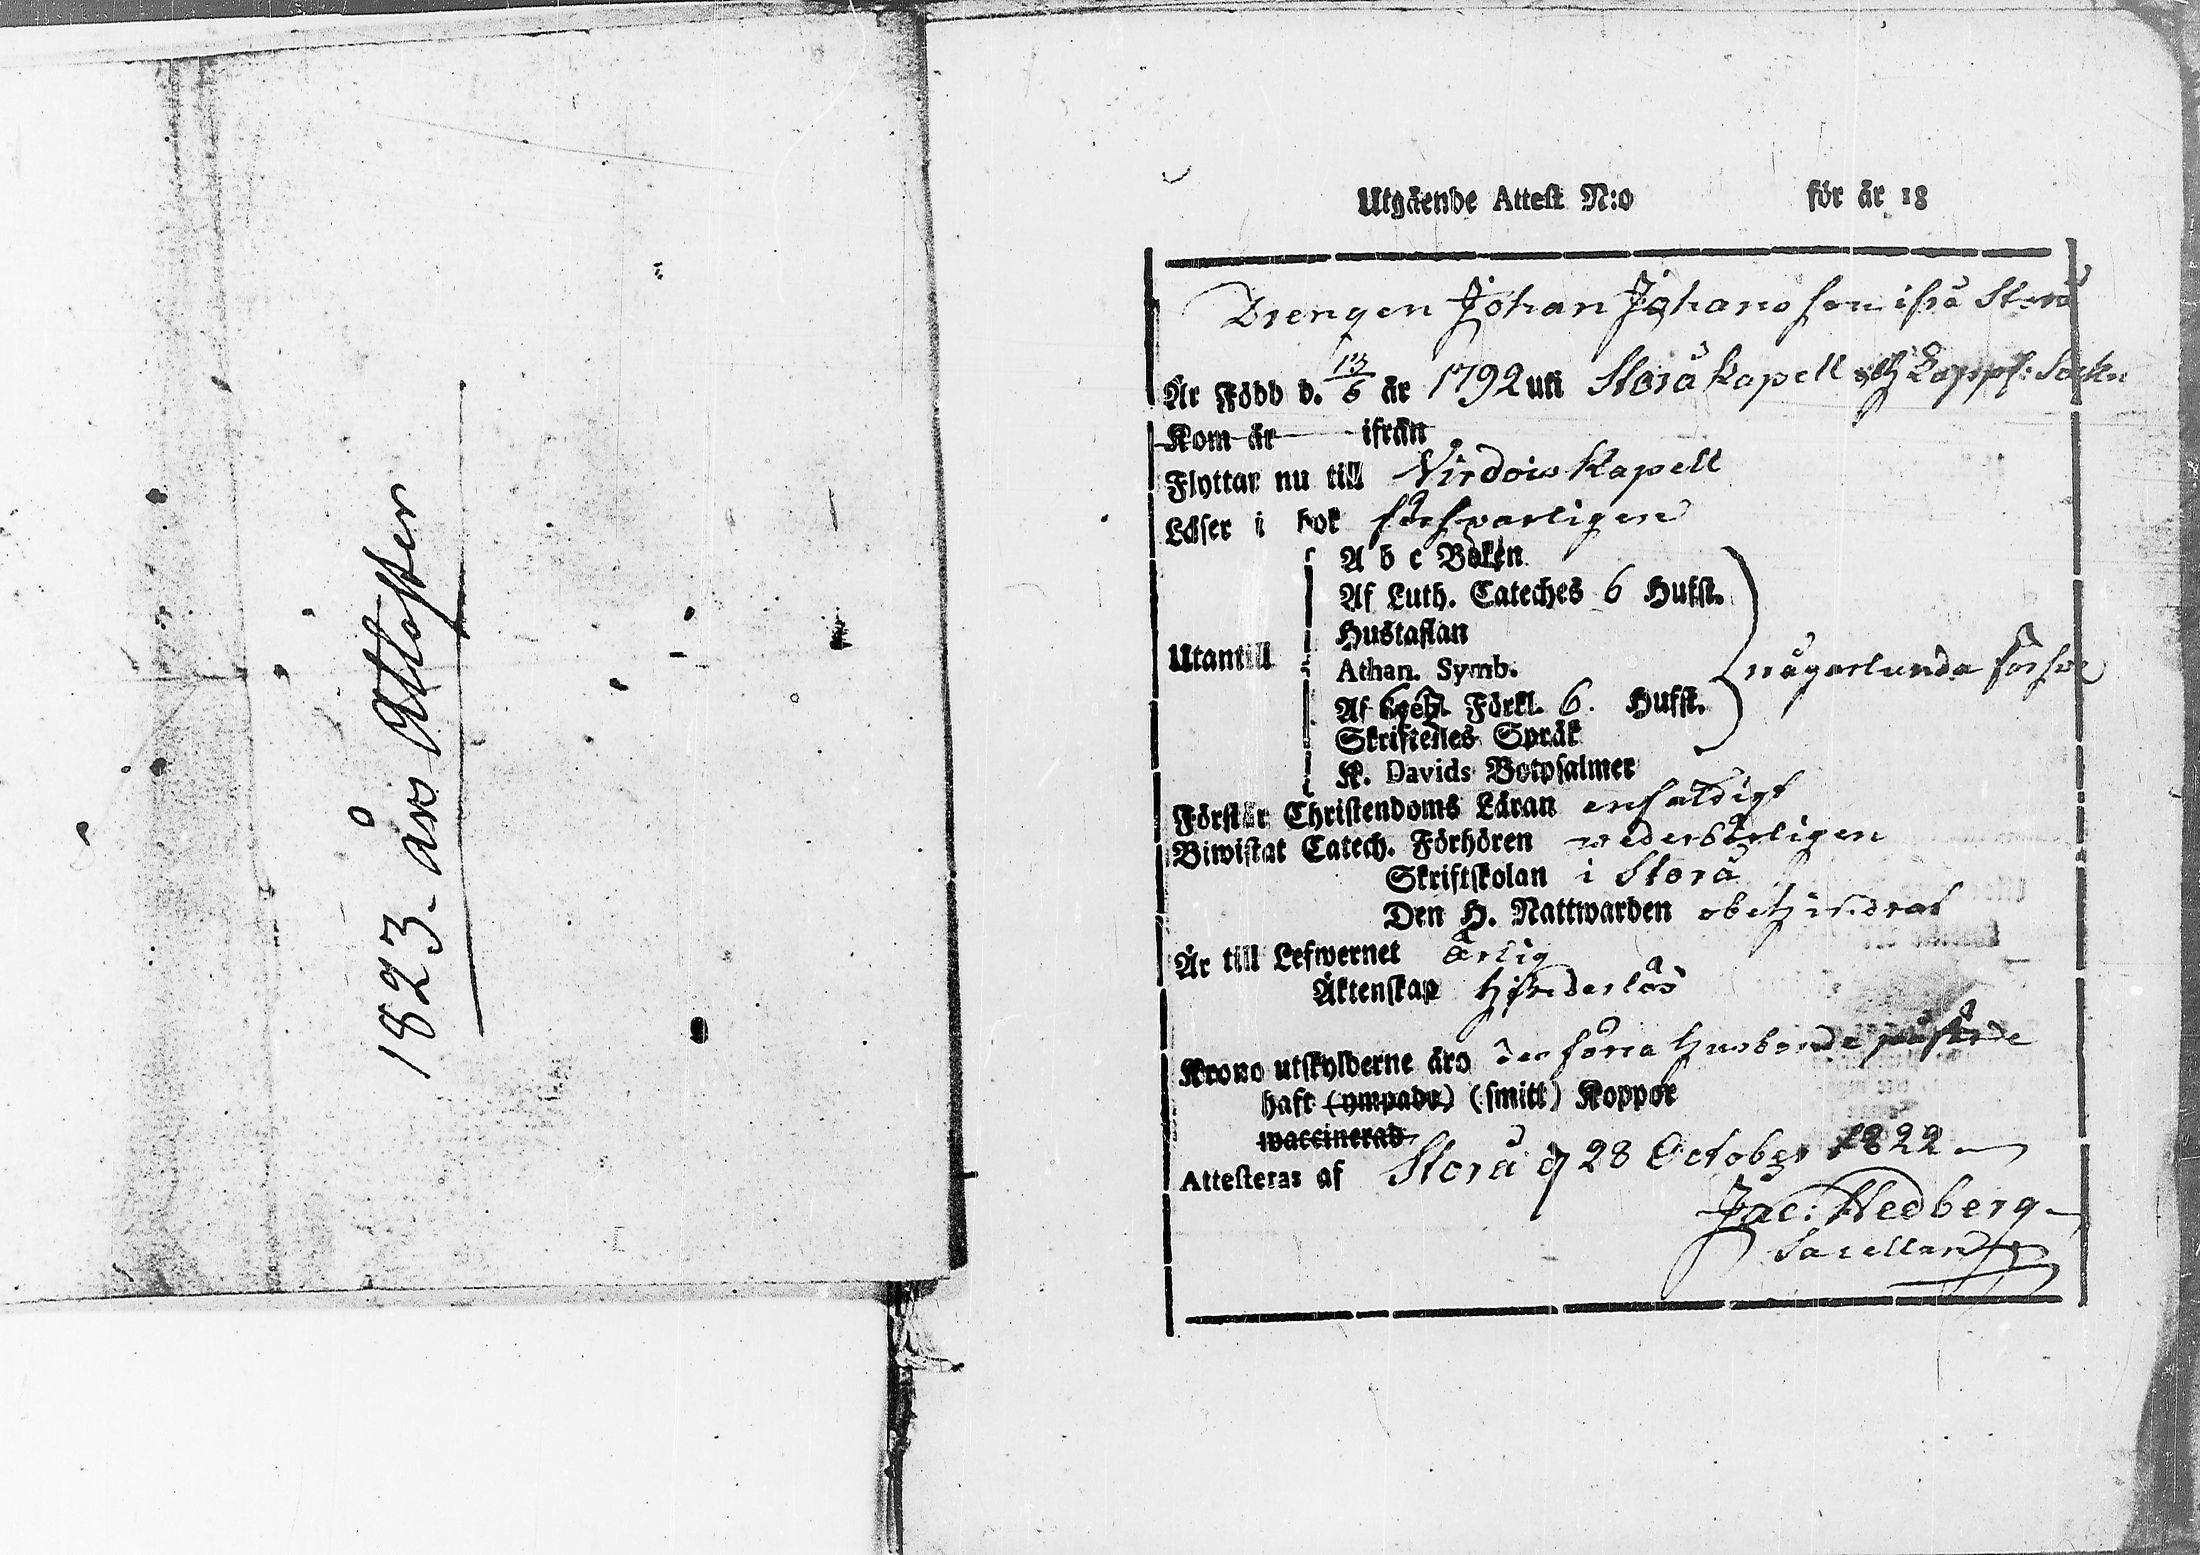 1823 års Attester
Utgående Attest N:o för år 18
Drengen Johan Johansson ifrå Storå
Är Född d. 13/6 år 1792 uti Storå kapell och Lappf: Sokn
Kom år ifrån
Flyttar nu till Virdois Kapell
Läser i bok försvarligen
A b c Boken
Af Luth. Cateches 6 Hufst.
Hustaflan
Utantill
Athan. Symb.
någorlunda försv
Af Förkl. 6. Hufst.
Skriftenes Språk
K. Davids Botpsalmer
Förstår Christendoms Läran enfaldigt
Biwistat Catech. Förhören wederbörligen
Skriftskolan i Storå
Den H. Nattwarden obehindrat
Är till Lefwernet ärlig
Äktenskap hinderlös
Krono utskylderne äro förra Husbonde påförde
haft (ympade) (smitt) Koppor
waccinerad
Attesteras af Storå d 28 October 1822
Jac: Hedberg
Sacellan